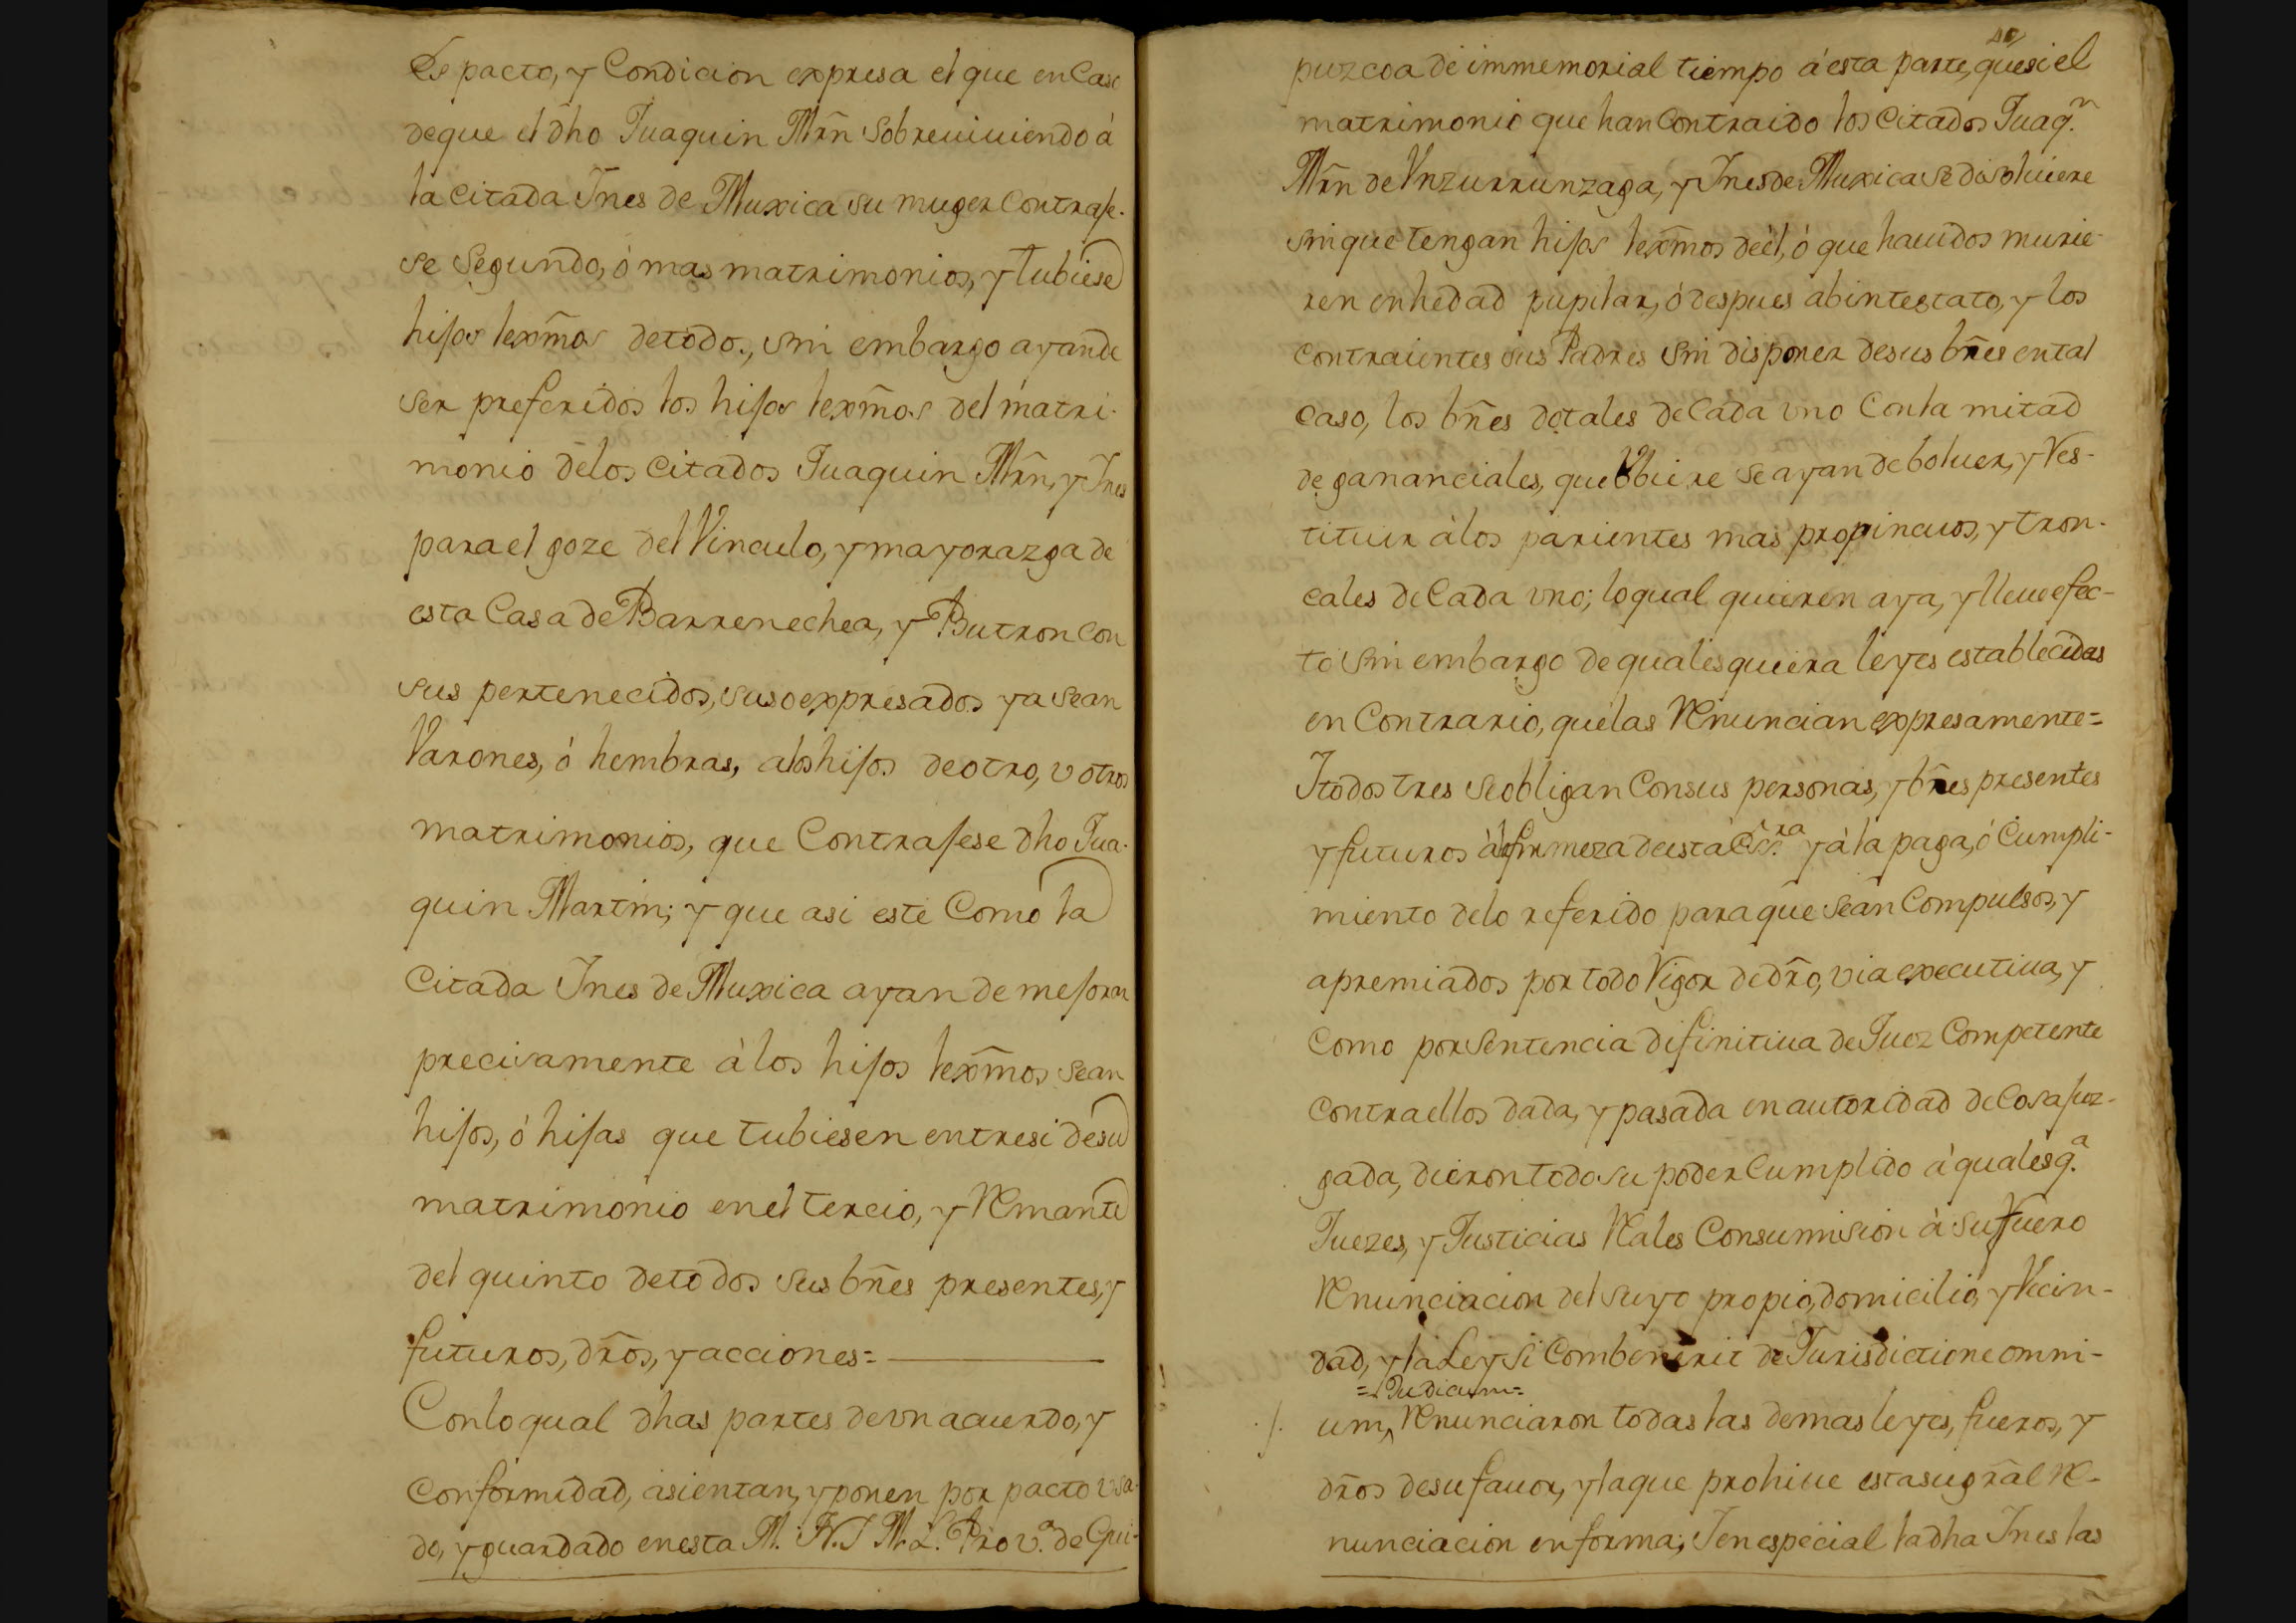 Es pacto, y Condicion expresa el que en Caso
de que el dho Juaquin Mrñ Sobreuiuiendo â
la citada Ines de Muxica su muger Contraje-
se Segundo, ô mas matrimonios, y tubiese
hijos lexm̃os de todo, sin embargo ayan de
ser preferidos los hijos lexm̃os del matri-
monio delos citados Juaquin Mrñ, y Ines
para el goze del Vinculo, y mayorazga de
esta Casa de Barrenechea, y Butron con
sus pertenecidos, susoexpresados ya sean
Varones, ô hembras, alos hijos de otro, v otros
matrimonios, que Contrajese dho Jua-
quin Martin; y que asi este Como la
Citada Ines de Muxica ayan de mejorar
precisamente â los hijos lexm̃os sean
hijos, ô hijas que tubiesen entresi de su
matrimonio en el tercio, y Remante
del quinto de todos sus bñes presentes, y
futuros, dr̃os, y acciones=
Con lo qual dhas partes de vn acuerdo, y
conformidad, asientan, y ponen por pacto vsa-
do, y guardado en esta M. N. J M. L. Prov.ª de Gui-
puzcoa de immemorial tiempo â esta parte, que si el
matrimonio que han Contraido los citados Juaq.n
Mrñ de Vnzurrunzaga, y Ines de Muxica se disoluiere
sin que tengan hijos lexm̃os de êl, ô que hauidos murie-
ren en hedad pupilar, ô despues abintestato, y los
contraientes sus Padres sin disponer de sus bñes en tal
caso, los bñes dotales de Cada vno Con la mitad
de gananciales, que Vbiere se ayan de boluer, y Res-
tituir â los parientes mas propincuos, y tron-
cales de Cada vno; lo qual quieren aya, y lleue efec-
to sin embargo de qualesquiera leyes establecidas
en Contrario, que las Renuncian expresamente=
J todos tres se obligan Con sus personas, y bñes presentes
y futuros â la firmeza de esta Ess.ra y â la paga, ô Cumpli-
miento delo referido para que sean Compulsos, y
apremiados por todo Vigor de dr̃o, via executiua, y
Como por sentencia difinitiua de Juez Competente
contra ellos dada, y pasada en autoridad de Cosa juz-
gada, dieron todo su poder Cumplido â qualesq.ª
Juezes, y Justicias Rales Con sumision â su fuero
Renunciacion del suyo propio, domicilio, y Vecin-
dad, y la Ley Si Combenerit de Jurisdictione omni-
=Judicum=
um, Renunciaron todas las demas leyes, fueros, y
dr̃os de su fauor, y la que prohiue esta su gr̃al Re-
nunciacion en forma; J en especial la dha Ines las